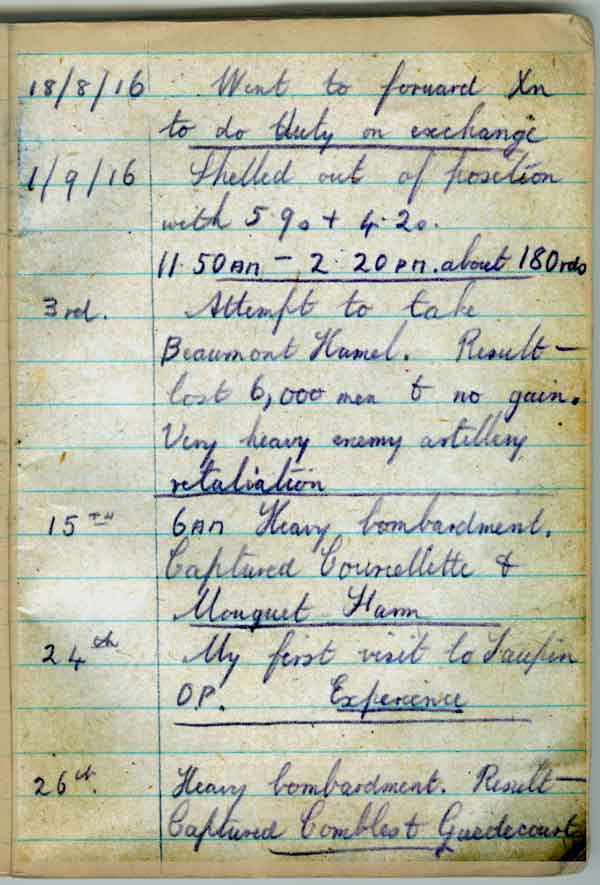 18/8/16 Went to forward Xn
to do duty on exchange
1/9/16 Shelled out of position
with 5.9s + 4.2s.
11.50 AM – 2.20 PM. about 180rds
3rd. Attempt to take
Beaumont Hamel. Result –
lost 6,000 men & no gain.
Very heavy enemy artillery
retaliation
15TH 6AM Heavy bombardment.
Captured Courcellette &
Mouquet Farm
24th My first visit to
OP. Experience
26th. Heavy bombardment. Result –
Captured Combles & Guedecourt